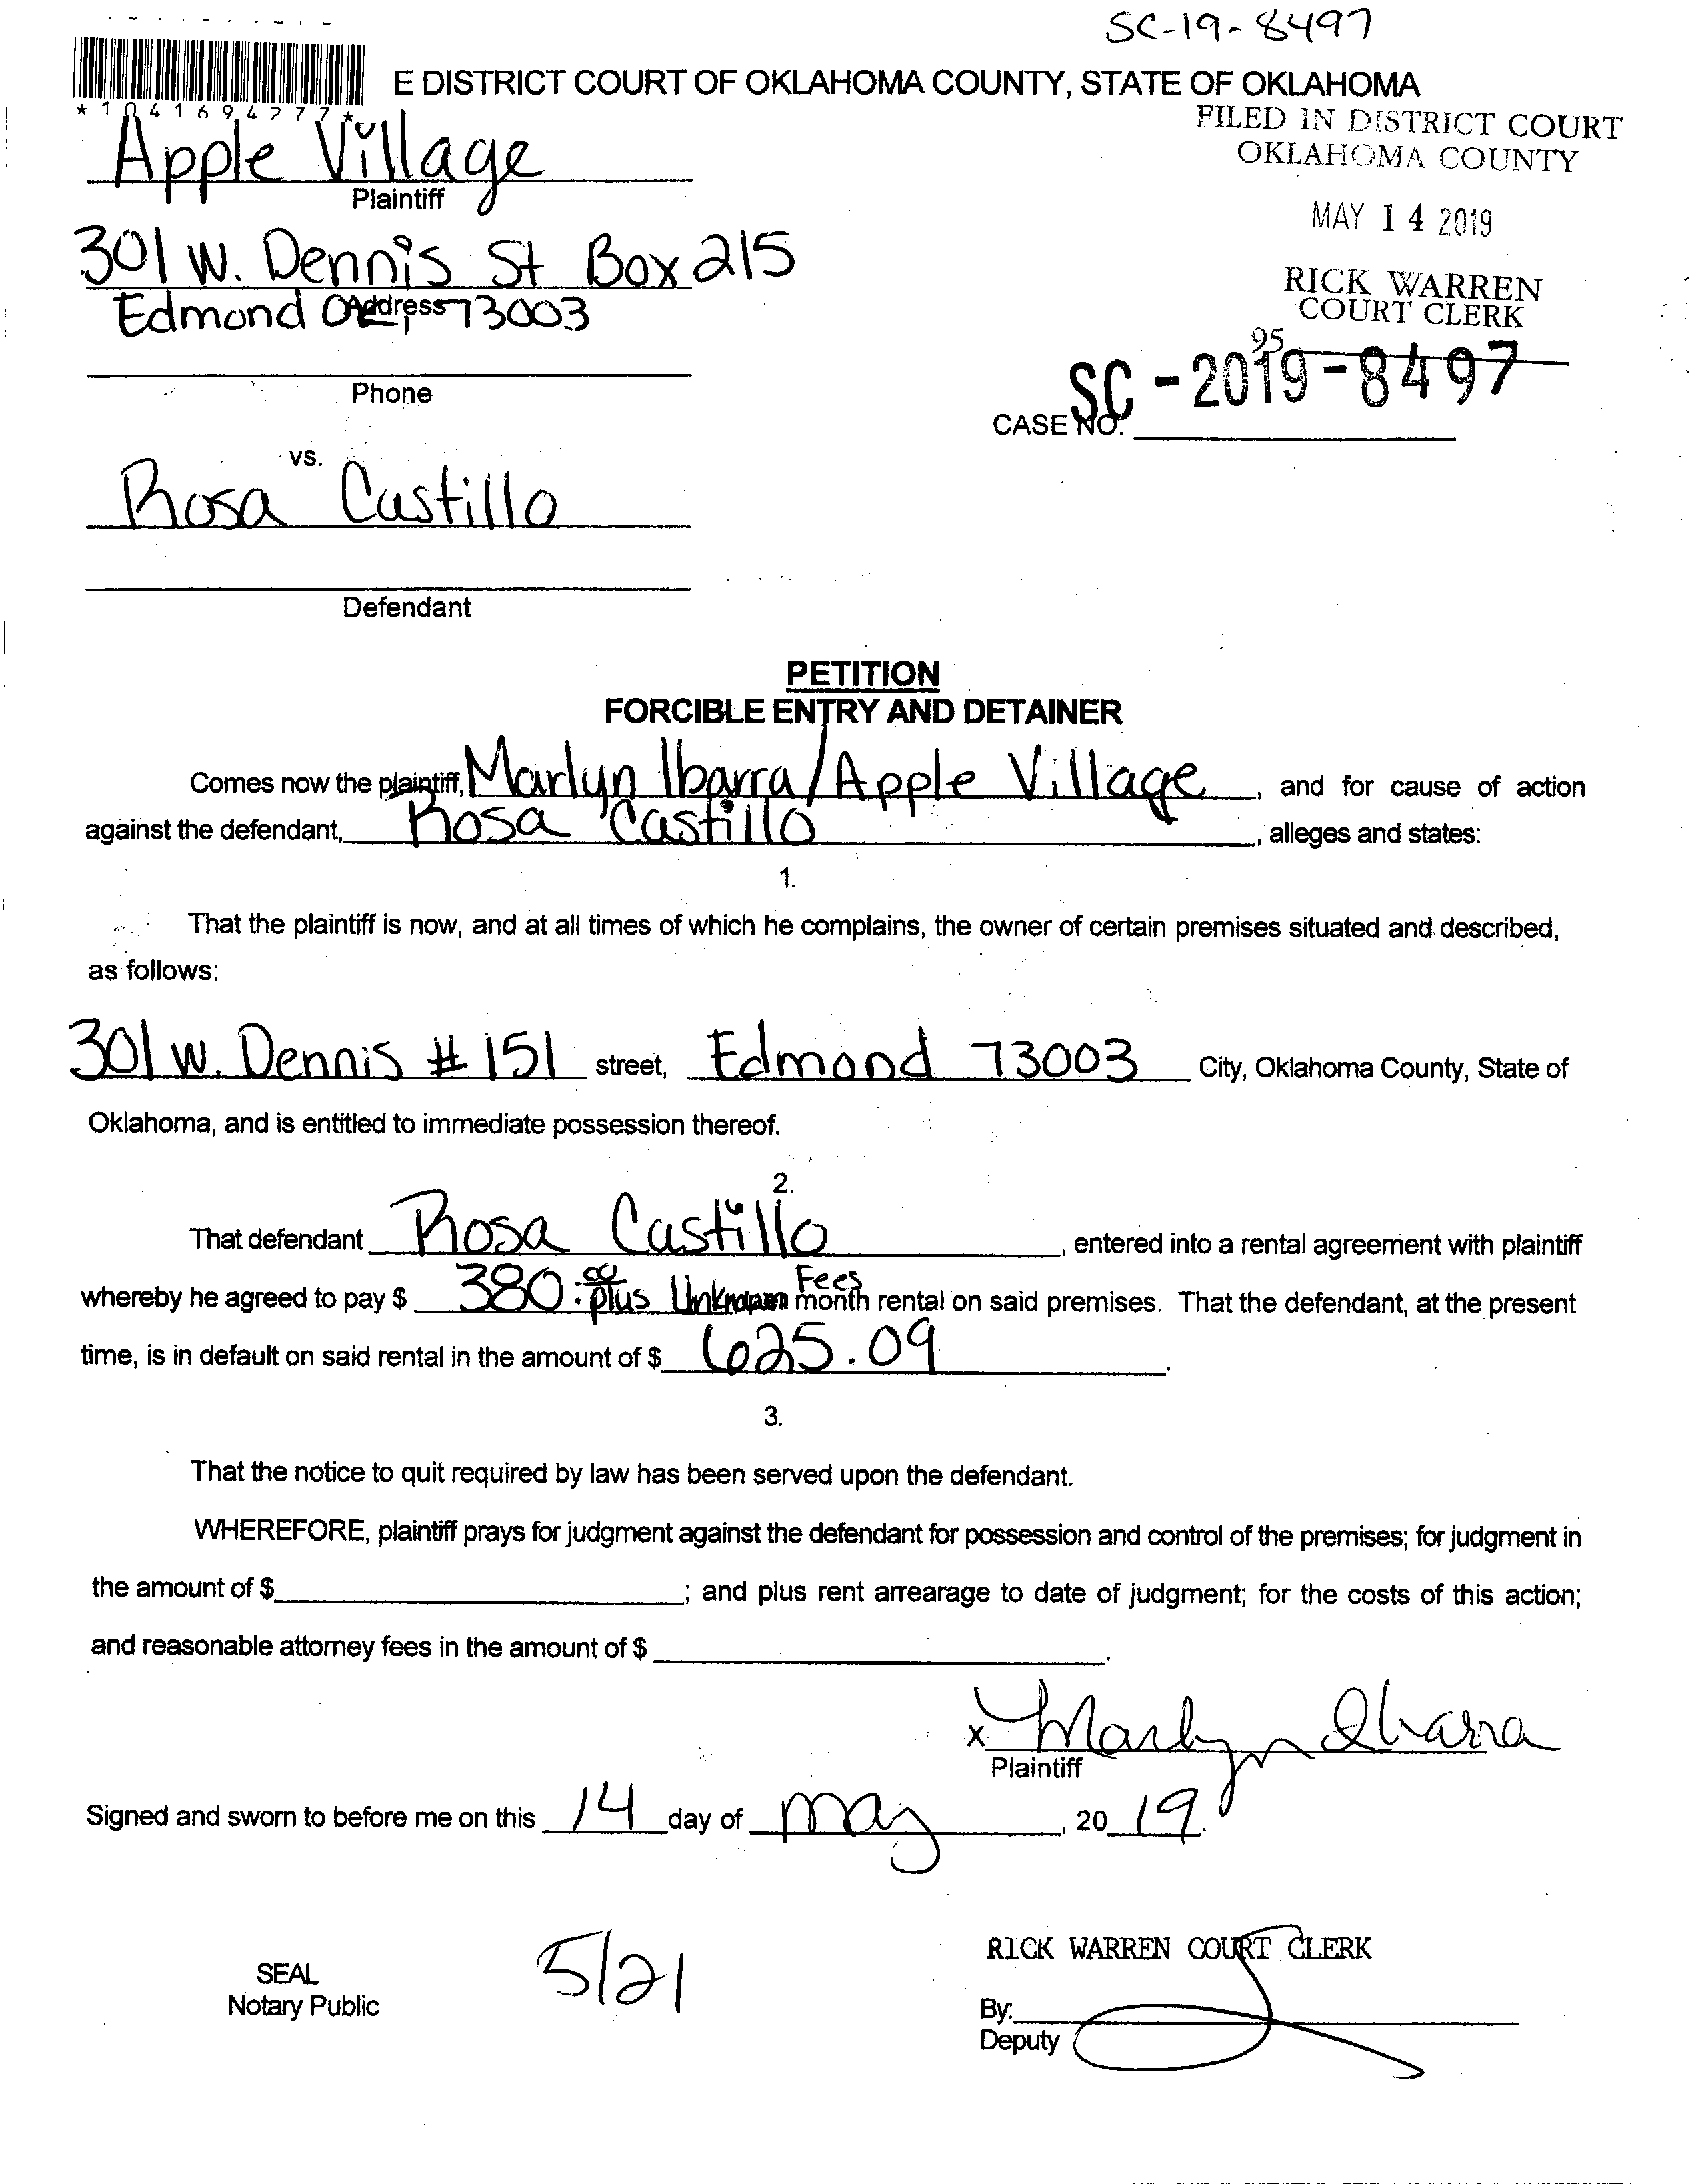 SC-19-8497
E DISTRICT COURT OF OKLAHOMA COUNTY, STATE OF OKLAHOMA
*1041694277*
FILED IN DISTRICT COURT
OKLAHOMA COUNTY
Apple Village
Plaintiff
MAY 14 2019
301 W. Dennis St Box 215
RICK WARREN
COURT CLERK
Edmond OK, 73003
Address
95
SC-2019-8497
Phone
CASE NO.
vs.
Rosa Castillo
Defendant
PETITION
FORCIBLE ENTRY AND DETAINER
Comes now the plaintiff, Marlyn Ibarra/Apple Village, and for cause of action
against the defendant, Rosa Castillo, alleges and states:
1.
That the plaintiff is now, and at all times of which he complains, the owner of certain premises situated and described,
as follows:
301 W. Dennis # 151 street, Edmond 73003 City, Oklahoma County, State of
Oklahoma, and is entitled to immediate possession thereof.
2.
That defendant Rosa Castillo, entered into a rental agreement with plaintiff
whereby he agreed to pay $ 380.00 plus Unknown Fees month rental on said premises. That the defendant, at the present
time, is in default on said rental in the amount of $ 625.09.
3.
That the notice to quit required by law has been served upon the defendant.
WHEREFORE, plaintiff prays for judgment against the defendant for possession and control of the premises; for judgment in
the amount of $ ; and plus rent arrearage to date of judgment; for the costs of this action;
and reasonable attorney fees in the amount of $ .
x Marlyn Ibarra
Plaintiff
Signed and sworn to before me on this 14 day of May, 20 19.
RICK WARREN COURT CLERK
5/21
SEAL
Notary Public
By:
Deputy